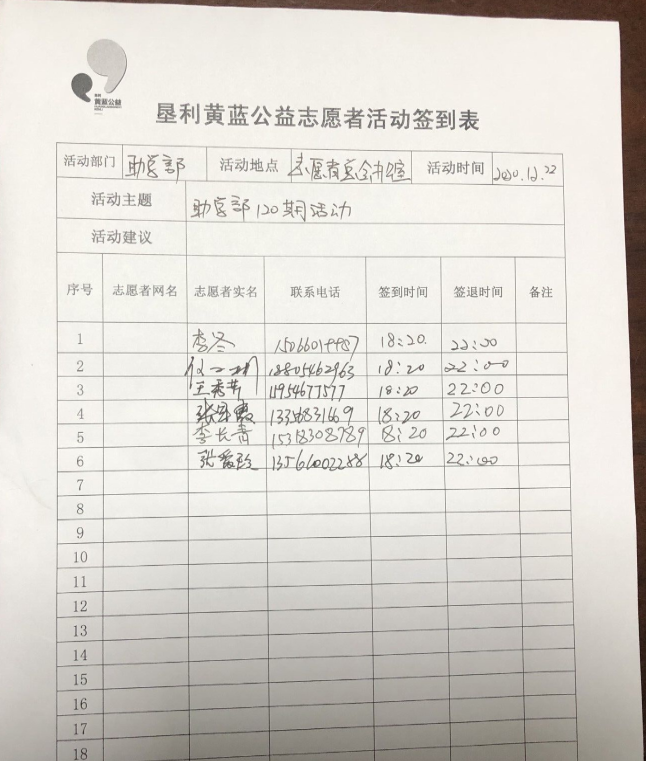 黄蓝公益
垦利黄蓝公益志愿者活动签到表
活动部门 助学部 活动地点 志愿者 活动时间 2020.12.22
活动主题 助学部120期活动
活动建议
序号 志愿者网名 志愿者实名 联系电话 签到时间 签退时间 备注
1 李冬 18:20. 22:00
2 18805462963 18:20 22:00
3 王秀芹 11954677577 18:20 22:00
4 18:20 22:00
5 李长青 15318308789 8:20 22:00
6 张爱玲 13561002288 18:20 22:00
7
8
9
10
11
12
13
14
15
16
17
18